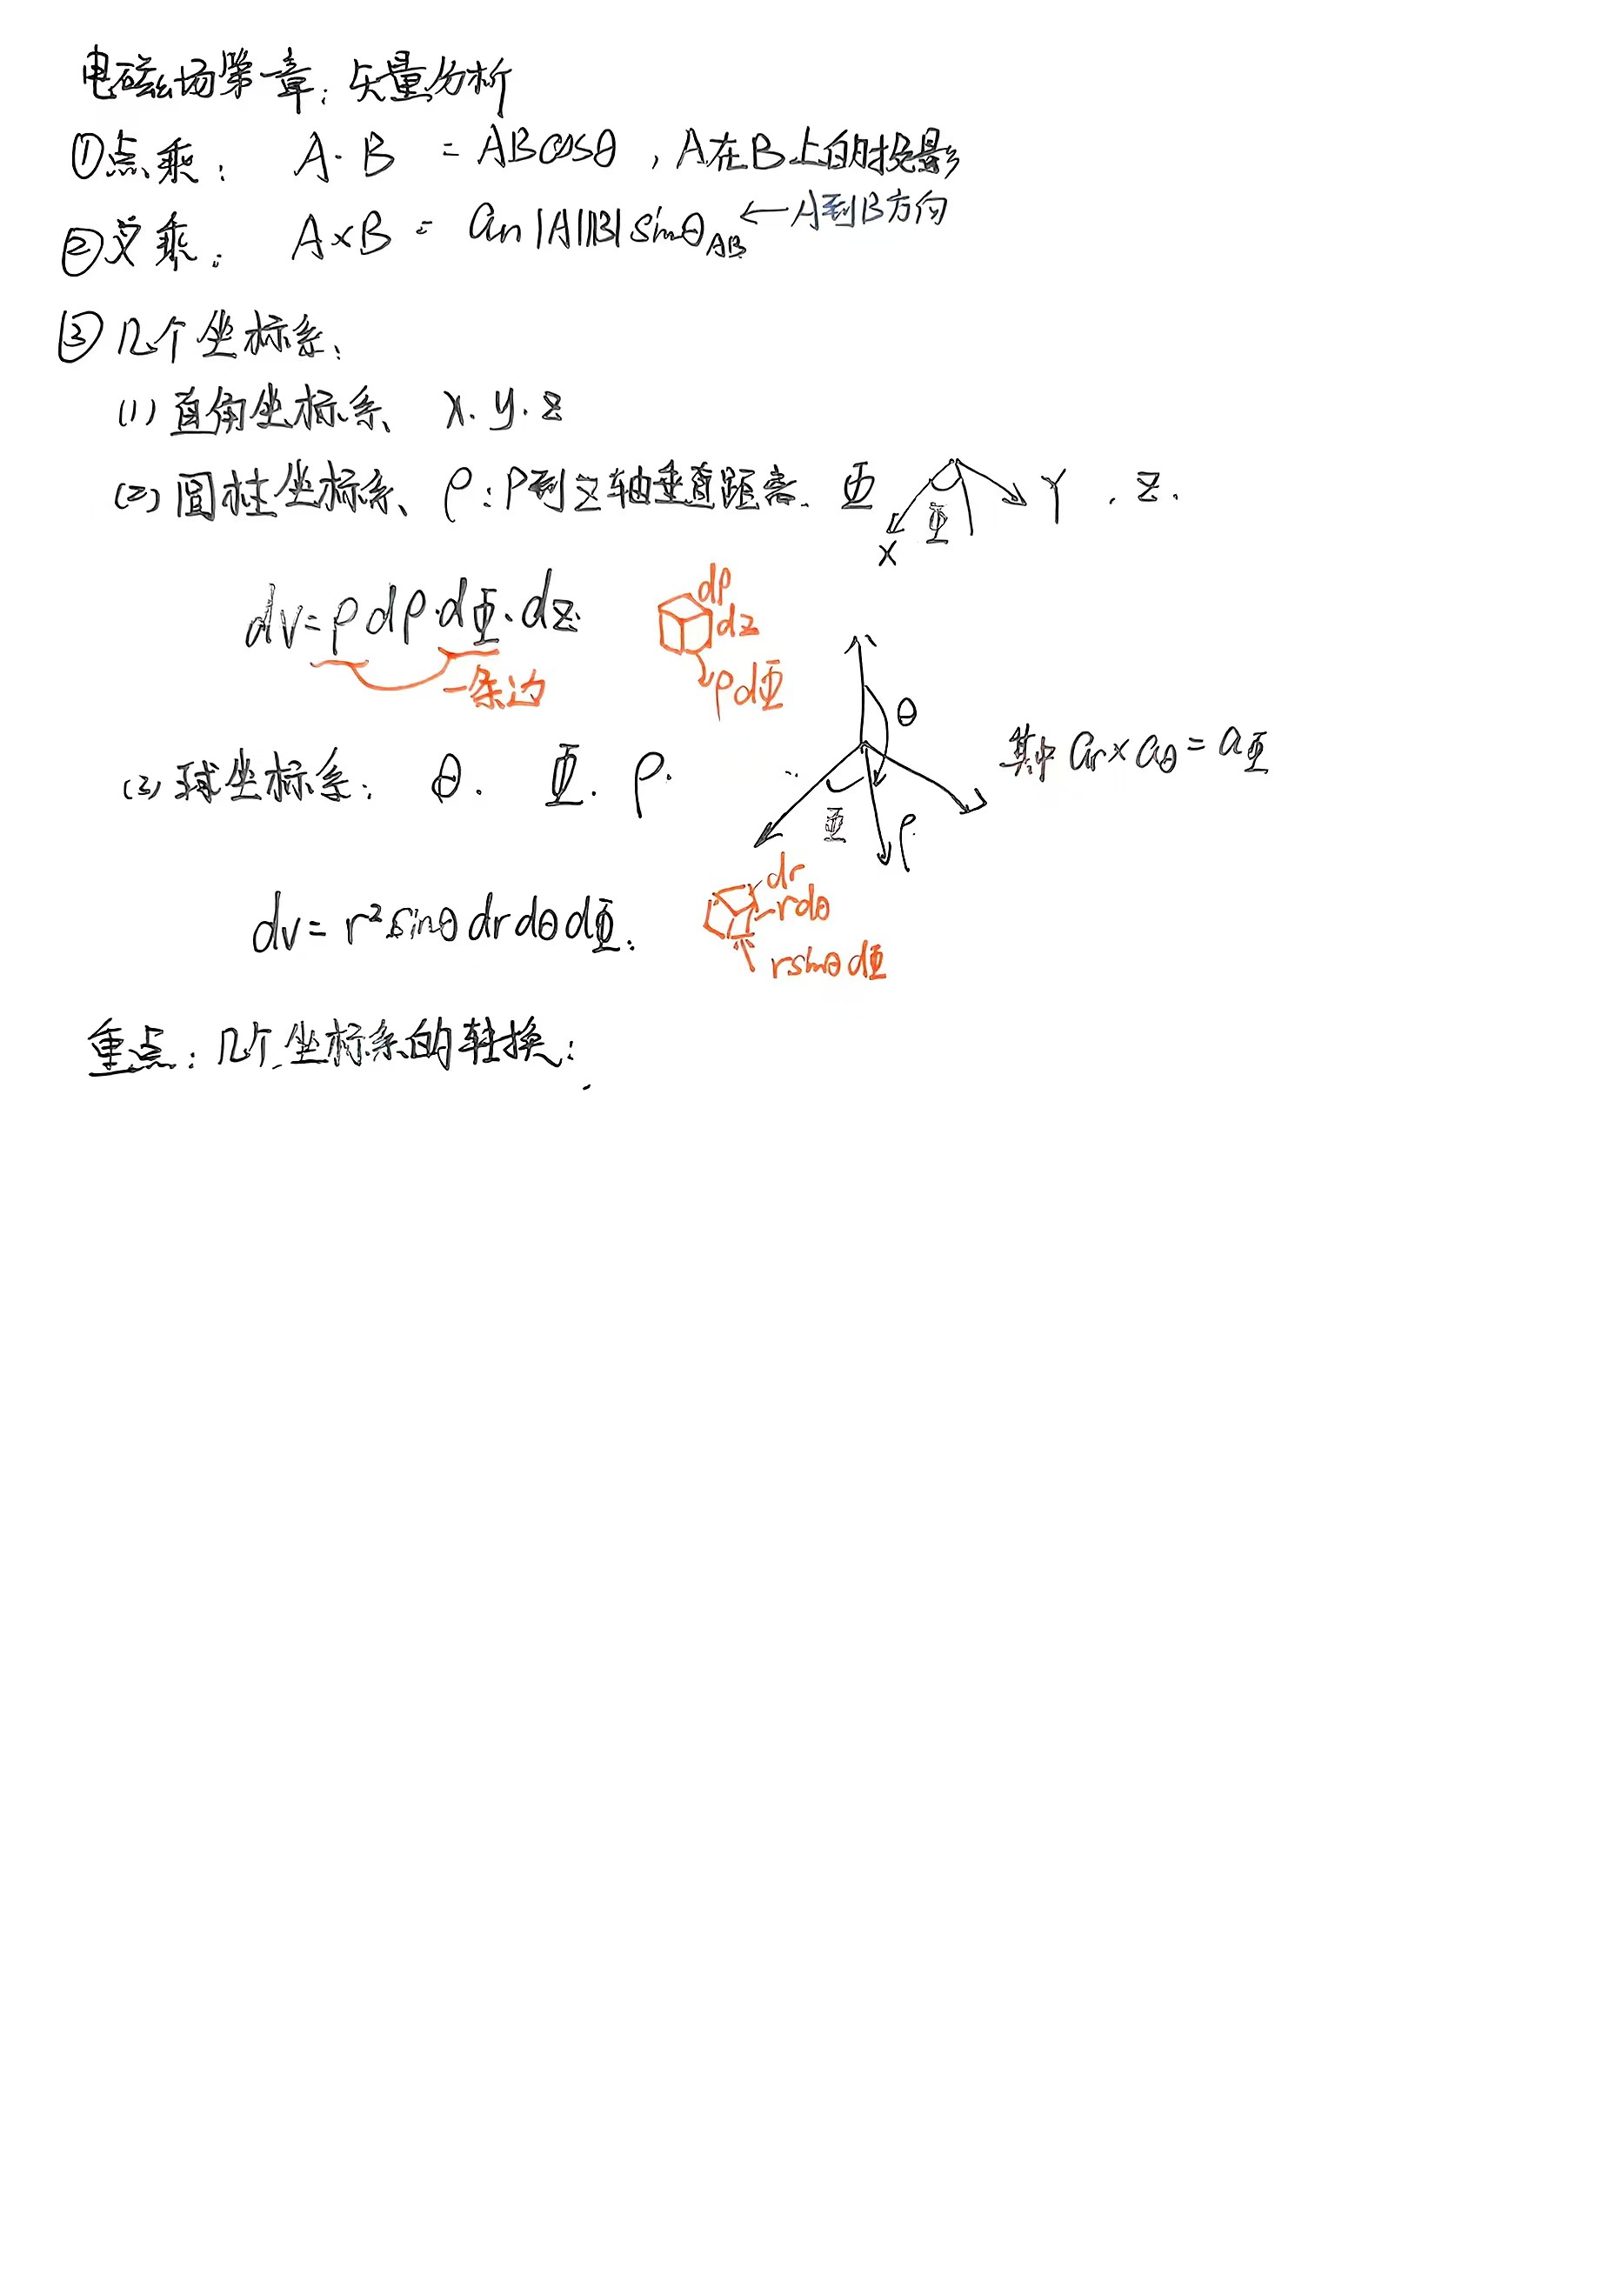 电磁场第一章：矢量分析
①点乘： A·B = ABcosθ , A在B上的投影
②叉乘： A×B = an|A||B|sinθAB ← A到B方向
③几个坐标系：
(1) 直角坐标系、 x. y. z
(2) 圆柱坐标系、 ρ：P到Z轴垂直距离. Φ X Φ Y . z.
dv=ρdρ·dΦ·dz. dρ dz
一条边 ρdΦ
θ
(3) 球坐标系： θ. Φ. ρ. Φ ρ 其中 ar×aθ=aΦ
dr
dv=r²sinθdrdθdΦ. rdθ
rsinθdΦ
重点：几个坐标系的转换：